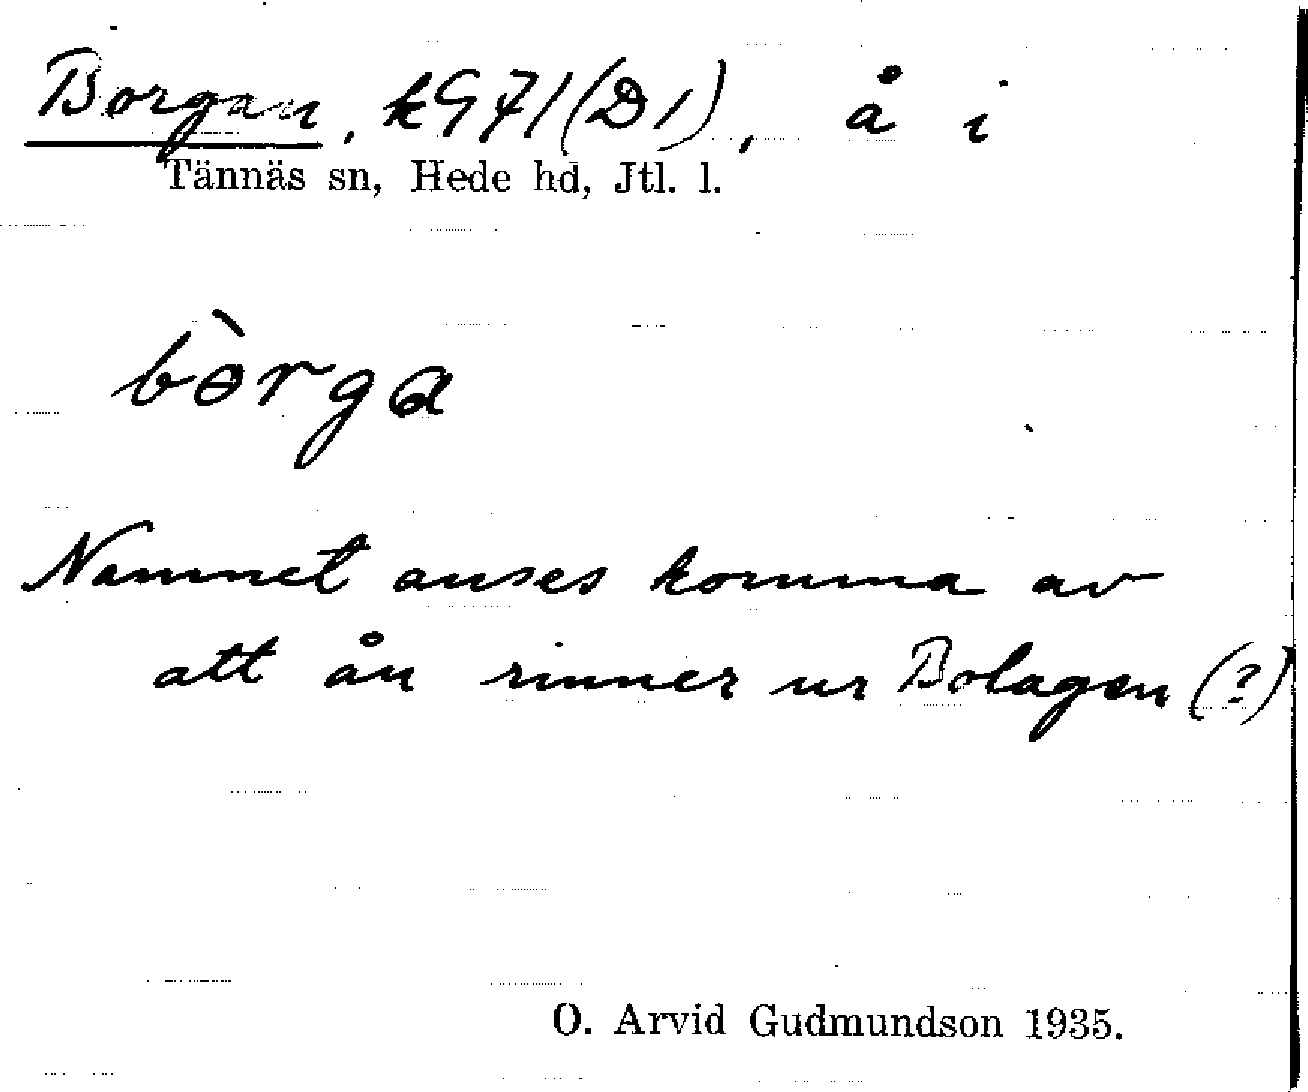 Borgan, k971(D1), å i
Tännäs sn, Hede hd, Jtl. l.
bὸrga
Namnet anses komma av
att ån rinner ur Bolagen (?)
O. Arvid Gudmundson 1935.